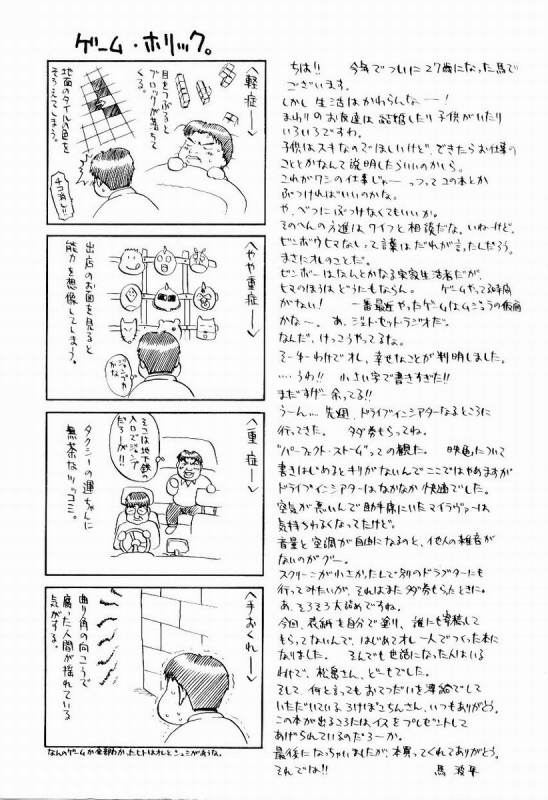 ゲーム・ホリック。
へ軽症ー＞
目をつぶると
ブロックが落ちて
くる。
地面のタイルの色を
そろえてしまう。
チコ消し!!
へやや重症ー＞
出店のお面を見ると
能力を想像してしまう。
ジュシャか
かな
へ重症ー＞
そこは地下鉄の
入口でジャンプ
だろーが!!
タクシーの運ちゃんに
無茶なツッコミ。
へ手おくれー＞
曲り角の向こうで
腐った人間が揺れている
気がする。
なんのゲームか全部わかったヒトはオレとシュミがあうな。
ちは!!　今年でついに27歳になった馬で
ございます。
しかし生活はかわらんなー!
まわりのお友達は結婚したり子供がいたり
いろいろですわ。
子供はスキなのでほしいけど、できたらお仕事の
こととかなんて説明したらいいのかしら。
これがワシの仕事じゃーっつってコの本とか
ぶつければいいのかな。
や、べつにぶつけなくてもいいか。
そのへんの方達はワイフと相談だな。いねーけど。
ビンボウヒマなしって言葉はだれが言ったんだろう。
まさにオレのことだ。
ビンボーはなんとかなる実家生活者だが、
ヒマのほうはどうにもならん。　ゲームやってる時間
がない!　一番最近やったゲームはムジュラの仮面
かな〜。　あ、ジェット・セット・ラジオだ。
なんだ、けっこうやってるな。
そーゆーわけでオレ、幸せなことが判明しました。
....うわ!!　小さい字で書きすぎた!!
まだすげー余ってる!!
うーん...先週、ドライブインシアターなるところに
行ってきた。　タダ券もらってね。
"パーフェクト・ストーム"っての観た。　映画について
書きはじめるとキリがないんでここではやめますが
ドライブインシアターはなかなか快適でした。
空気が悪いんで助手席にいたマイラヴァーは
気持ちわるくなってたけど。
音量と空調が自由になるのと、他人の雑音が
ないのがグー。
スクリーンが小さかったんで別のドラブターにも
行ってみたいが、それはまたタダ券もらったときに。
あ、そろそろ大詰めですね。
今回、表紙を自分で塗り、誰にも寄稿して
もらってないんで、はじめてオレ一人でつくった本に
なりました。　そんでも世話になった人はいる
わけで、松島さん、どーもでした。
そして、何と言ってもおてつだいを薄給でして
いただいている、ろけぽこちんさん、いつもありがとう。
この本が出るころには、イスをプレゼントして
あげられているのだろーか。
最後になっちゃいましたが、本買ってくれてありがとう。
それでは!!